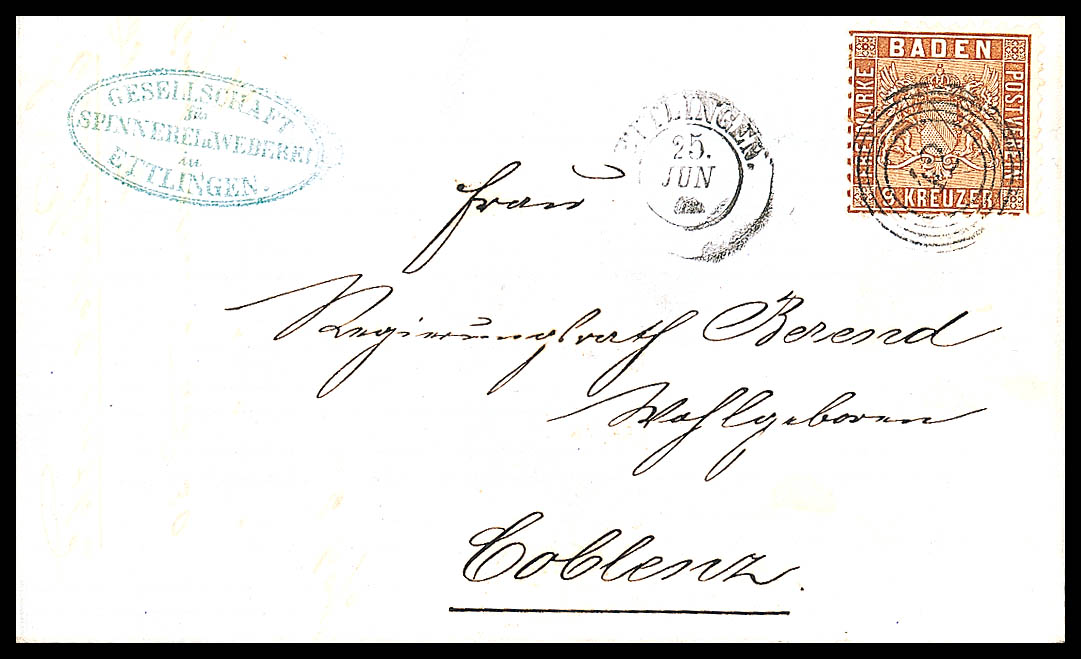 GESELLSCHAFT
für
SPINNEREI u. WEBEREI
in
ETTLINGEN.
ETTLINGEN.
25.
JUN
BADEN
FREIMARKE
POSTVEREIN
9 KREUZER
Frau
Regierungsrath Berend
Wohlgeboren
Coblenz.